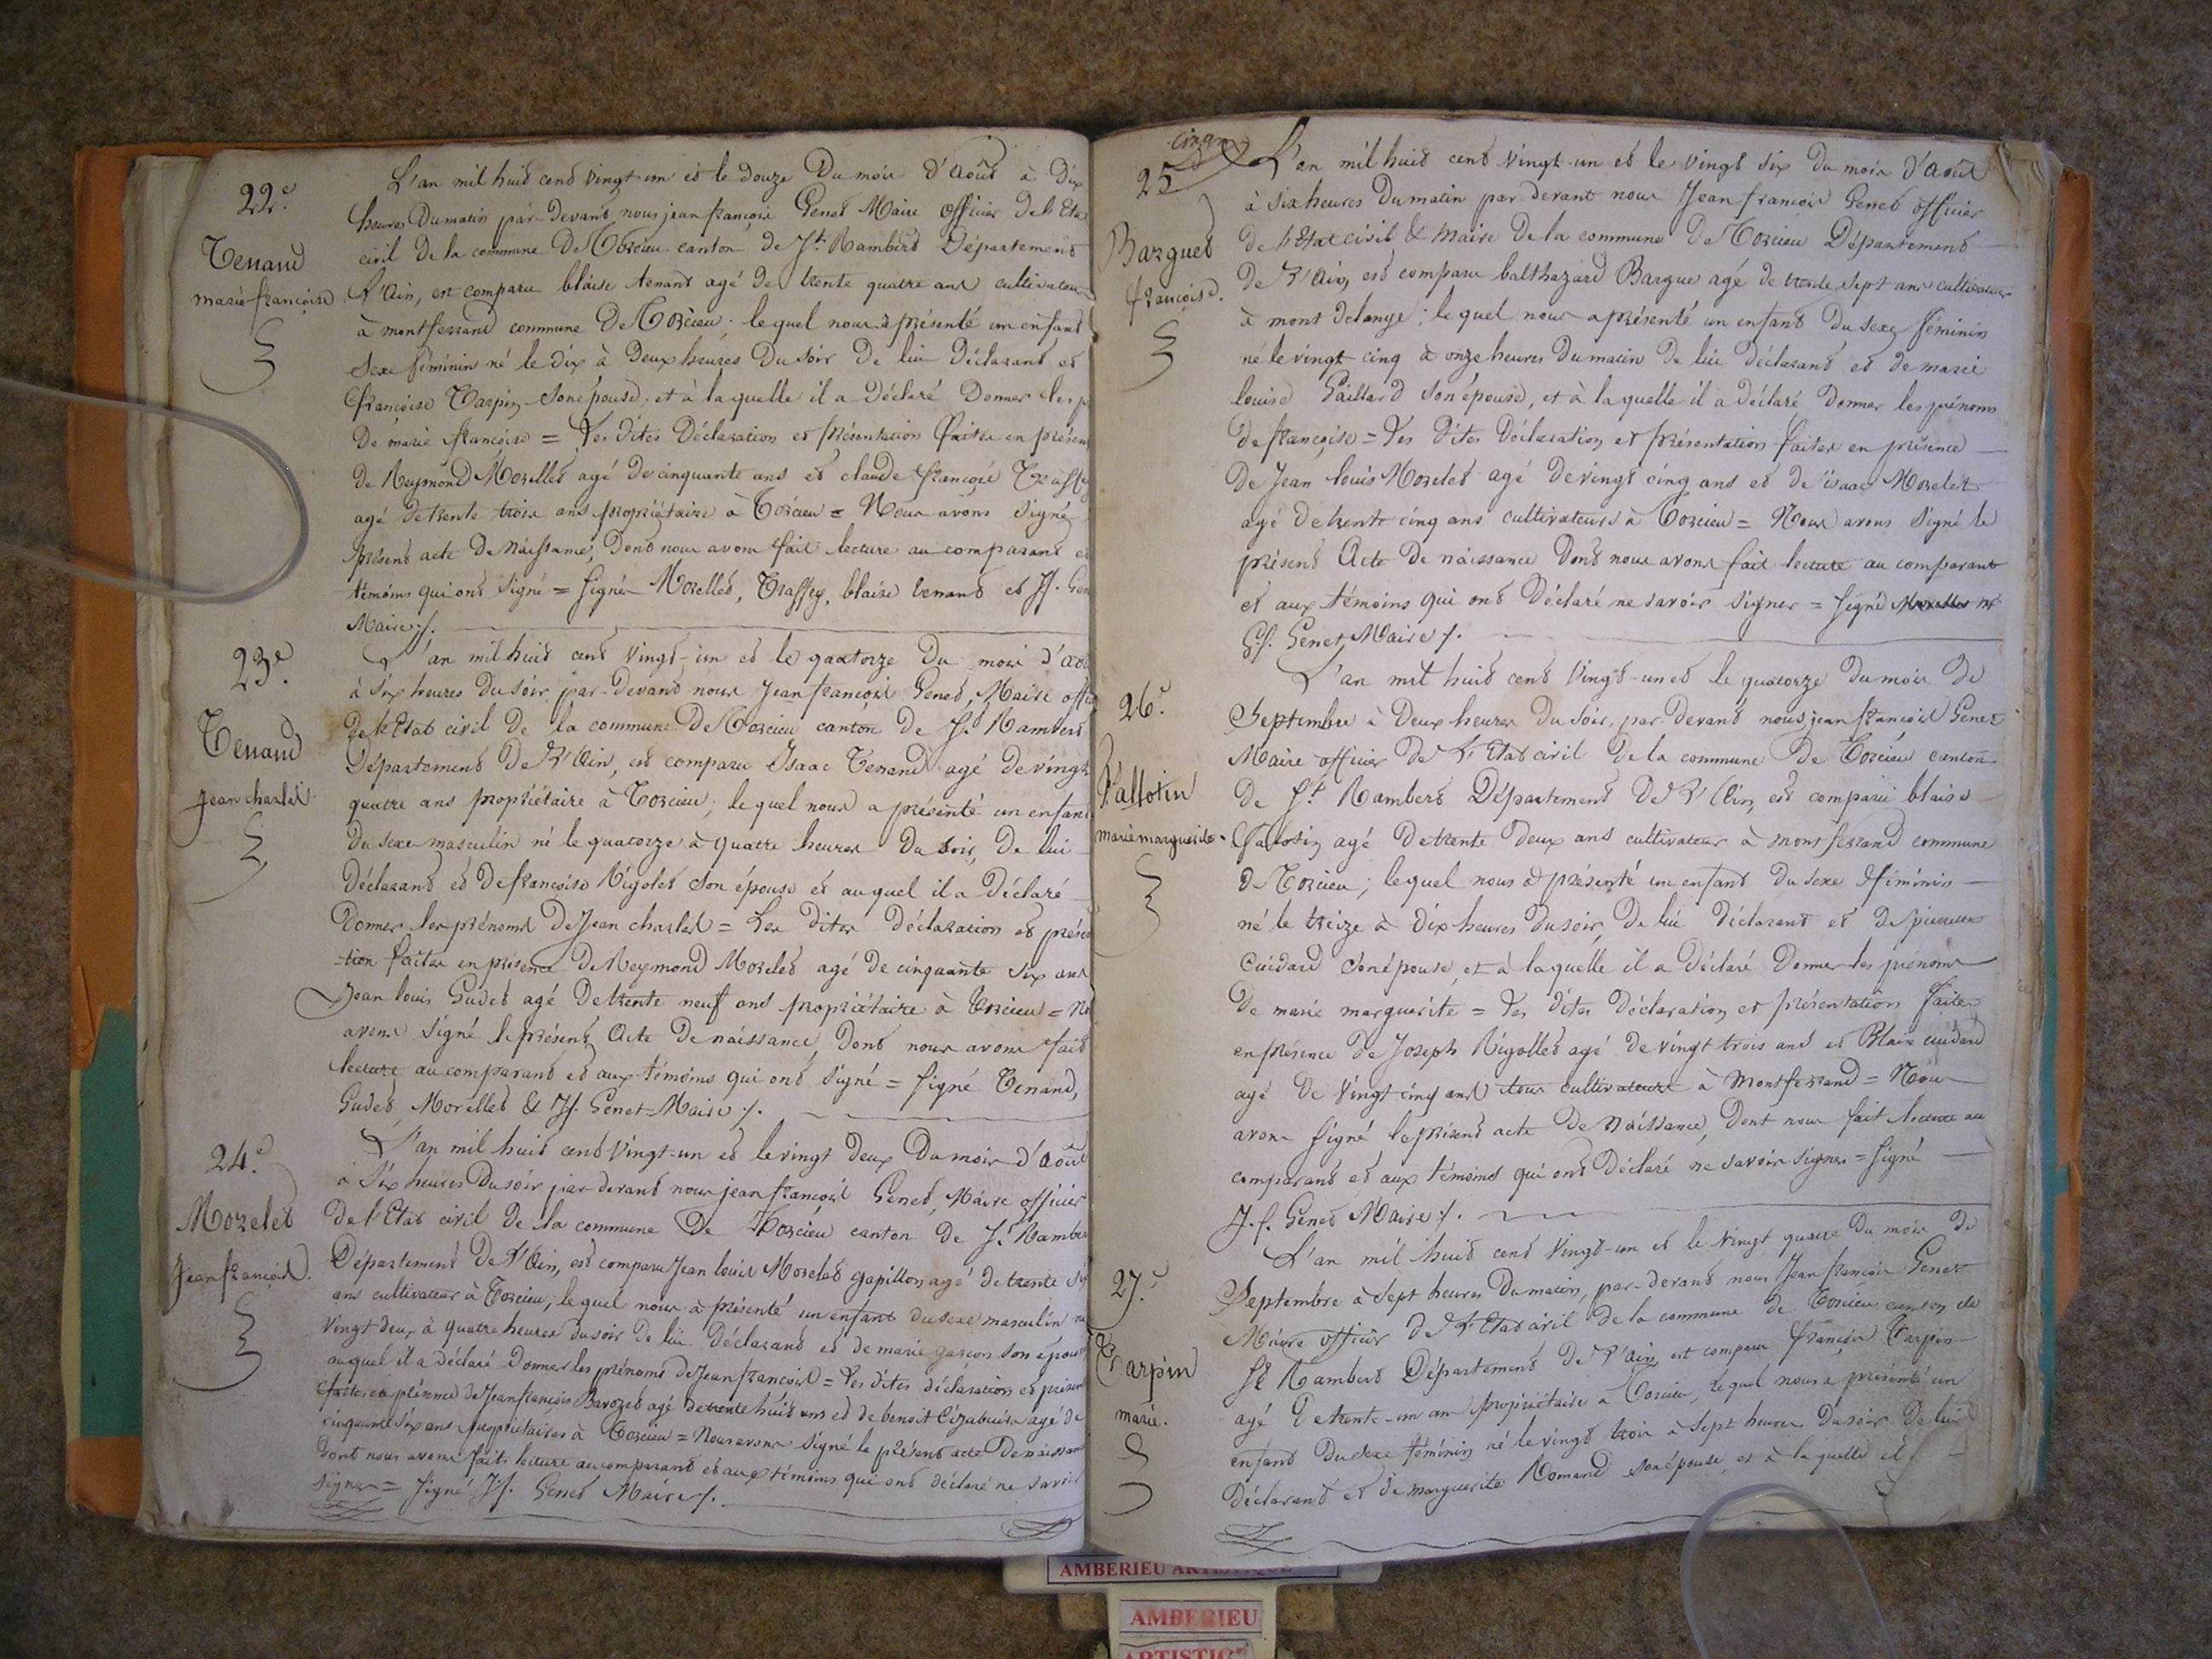 22e.
Tenand
marie françoise
L'an mil huit cent vingt-un et le douze Du mois d'Août à Dix
heures Du matin par-Devant nous jean françois Genet Maire officier De l'Etat
civil de la commune De Torcieu canton de St. Rambert Département
l'Ain, est comparu blaise tenant agé de trente quatre ans cultivateur
à montferrand commune De Torcieu; lequel nous a présenté un enfant
Sexe féminin né le dix à Deux heures Du soir De lui Déclarant et
françoise Tarpin son épouse, et à laquelle il a Déclaré Donner les p
De marie françoise = Les dites Déclaration et présentation faites en présen
De Reymond Morellet agé de cinquante ans et claude françois Traffey
agé de trente trois ans propriétaires à Torcieu = Nous avons signé
présent acte De Naissance, Dont nous avons fait lecture au comparant et
témoins qui ont signé = signés Morellet, Traffey, blaise tenant et Jf. Gen
Maire ./.
23e.
Tenand
jean charles
L'an mil huit cent vingt-un et le quatorze Du mois d'aoû
à six heures Du soir, par-Devant nous Jean françois Genet, Maire offi
de l'Etat civil de la commune De Torcieu canton de St. Rambert
Département De l'Ain, est comparu Isaac Tenand agé de vingt
quatre ans propriétaire à Torcieu; lequel nous a présenté un enfant
Du sexe masculin né le quatorze à quatre heures Du soir, De lui
Déclarant et De françoise Rigolet son épouse et auquel il a Déclaré
Donner les prénoms De Jean charles = Les dites déclaration et présen
-tion faites en présence De Reymond Morelet agé de cinquante six ans
Jean louis Gudet agé De trente neuf ans propriétaire à Torcieu = No
avons signé le présent Acte De naissance, Dont nous avons fait
lecture au comparant et aux témoins qui ont signé = signé Tenand,
Gudet, Morellet & Jf. Genet Maire ./.
24e.
Morelet
Jean françois.
L'an mil huit cent vingt-un et le vingt deux Du mois d'Août
à six heures Du soir par devant nous jean françois Genet, Maire officier
De l'Etat civil De la commune De Torcieu canton de St. Rambe
Département De l'Ain, est comparu Jean louis Morelet gapillon agé de trente six
ans cultivateur à Torcieu; lequel nous à présenté un enfant du sexe masculin né
vingt deux à quatre heures du soir De lui Déclarant et de marie garçon son épouse
auquel il a déclaré Donner les prénoms De Jean françois = Les dites déclaration et présent
faites en présence de Jean françois Barozet agé de trente huit ans et de benoit Cizabuire agé de
cinquante six ans propriétaires à Torcieu = Nous avons signé le présent acte De naissan
dont nous avons fait lecture au comparant et aux témoins qui ont déclaré ne savoir
signer = signé Jf. Genet Maire ./.
25
Barguet
françoise.
L'an mil huit cent vingt-un et le vingt six du mois d'Août
à six heures Du matin par devant nous Jean françois Genet officier
de l'Etat civil & Maire De la commune De Torcieu Département
de l'Ain, est comparu balthazard Bargue agé de trente sept ans cultivateur
à mont delange; lequel nous a présenté un enfant Du sexe féminin
né le vingt cinq à onze heures Du matin De lui déclarant et de marie
louise Gaillard son épouse, et à laquelle il a déclaré Donner les prénoms
de françoise = Les dites Déclaration et présentation faites en présence
De Jean louis Morelet agé de vingt cinq ans et de isaac Morelet
agé de trente cinq ans cultivateurs à Torcieu = Nous avons signé le
présent Acte De naissance Dont nous avons fait lecture au comparant
et aux témoins qui ont Déclaré ne savoir signer = signé
Genet, Maire ./.
26e.
fallotin
marie marguerite
L'an mil huit cent vingt-un et le quatorze Du mois De
Septembre à Deux heures Du soir, par-Devant nous jean françois Genet
Maire officier De l'Etat civil De la commune De Torcieu canton
De St. Rambert Département De l'Ain, est comparu blaise
falotin agé De trente Deux ans cultivateur à montferrand commune
De Torcieu; lequel nous a présenté un enfant Du sexe féminin
né le treize à Dix heures Du soir, De lui Déclarant et De pierrette
Cuidard son épouse, et à laquelle il a Déclaré Donner les prénoms
De marie marguerite = Les dites Déclaration et présentation faites
en présence De Joseph Rigollet agé De vingt trois ans et Blaise cuidard
agé De vingt cinq ans tous cultivateurs à Montferrand = Nous
avons signé le présent acte De Naissance, Dont nous fait lecture au
comparant et aux témoins qui ont Déclaré ne savoir signer = signé
J.f. Genet Maire ./.
27e.
Tarpin
marie.
L'an mil huit cent vingt-un et le vingt quatre Du mois De
Septembre à sept heures Du matin, par-devant nous Jean françois Genet
Maire officier De l'Etat civil De la commune De Torcieu canton de
St Rambert Département De l'Ain est comparu françois Tarpin
agé De trente-un ans propriétaire à Torcieu, lequel nous a présenté un
enfant Du sexe féminin né le vingt trois à sept heures Du soir De lui
Déclarant et De marguerite Romand son épouse, et à laquelle il
AMBERIEU ARTISTIQUE
AMBERIEU
ARTISTIQ